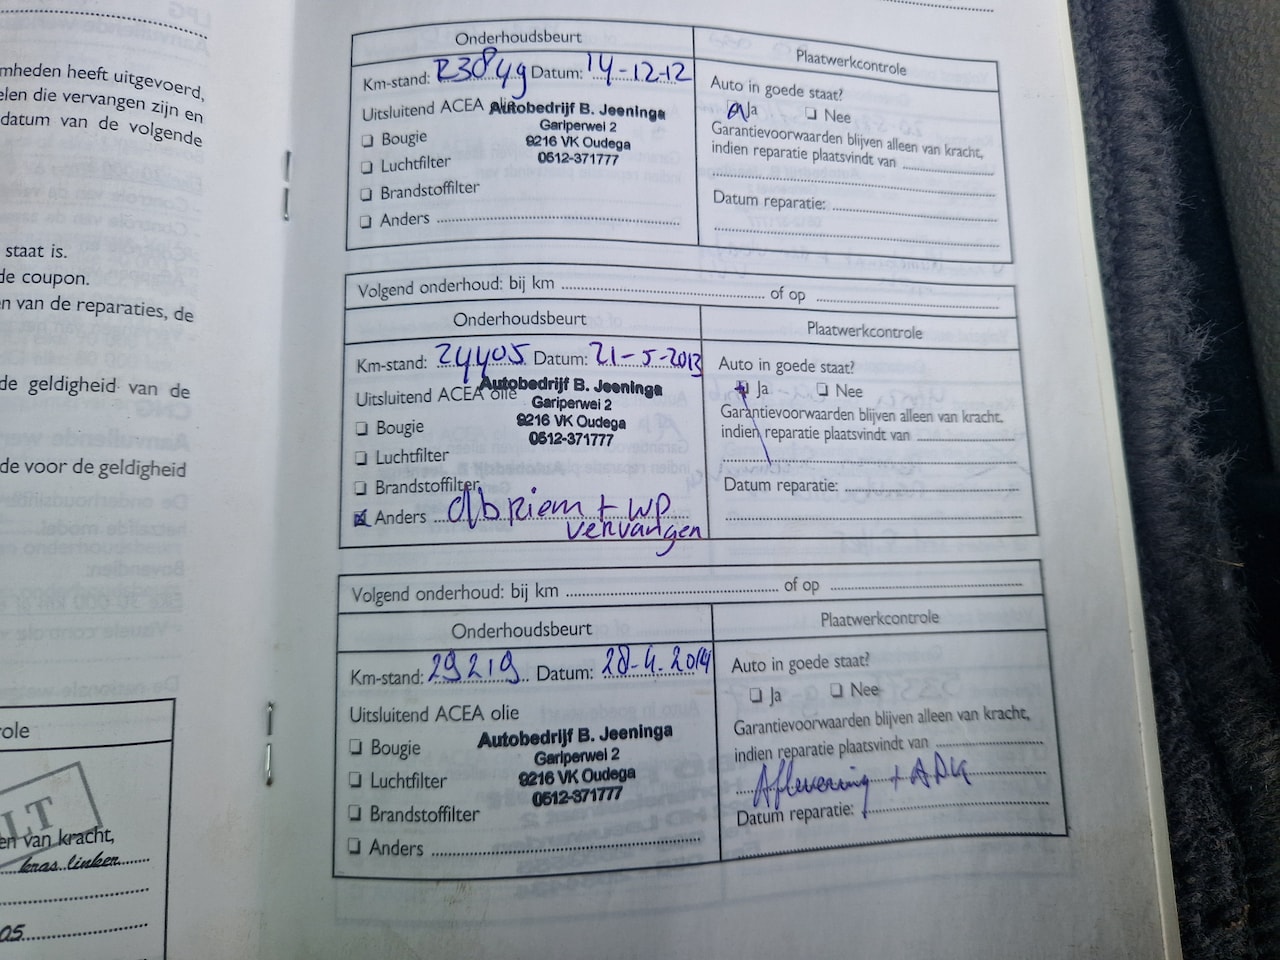 LPG
mheden heeft uitgevoerd,
elen die vervangen zijn en
datum van de volgende
staat is.
de coupon.
en van de reparaties, de
de geldigheid van de
de voor de geldigheid
role
LT
en van kracht,
kras linker
05
Onderhoudsbeurt
Plaatwerkcontrole
Km-stand: 23849 Datum: 14-12-12
Uitsluitend ACEA olie
Autobedrijf B. Jeeninga
Gariperwei 2
9216 VK Oudega
0512-371777
Bougie
Luchtfilter
Brandstoffilter
Anders
Auto in goede staat?
Ja Nee
Garantievoorwaarden blijven alleen van kracht,
indien reparatie plaatsvindt van
Datum reparatie:
Volgend onderhoud: bij km of op
Onderhoudsbeurt
Plaatwerkcontrole
Km-stand: 24405 Datum: 21-5-2013
Uitsluitend ACEA olie
Autobedrijf B. Jeeninga
Gariperwei 2
9216 VK Oudega
0512-371777
Bougie
Luchtfilter
Brandstoffilter
Anders db riem + WP
vervangen
Auto in goede staat?
Ja Nee
Garantievoorwaarden blijven alleen van kracht,
indien reparatie plaatsvindt van
Datum reparatie:
Volgend onderhoud: bij km of op
Onderhoudsbeurt
Plaatwerkcontrole
Km-stand: 29219 Datum: 28-4-2014
Uitsluitend ACEA olie
Autobedrijf B. Jeeninga
Gariperwei 2
9216 VK Oudega
0512-371777
Bougie
Luchtfilter
Brandstoffilter
Anders
Auto in goede staat?
Ja Nee
Garantievoorwaarden blijven alleen van kracht,
indien reparatie plaatsvindt van
Aflevering + APK
Datum reparatie: